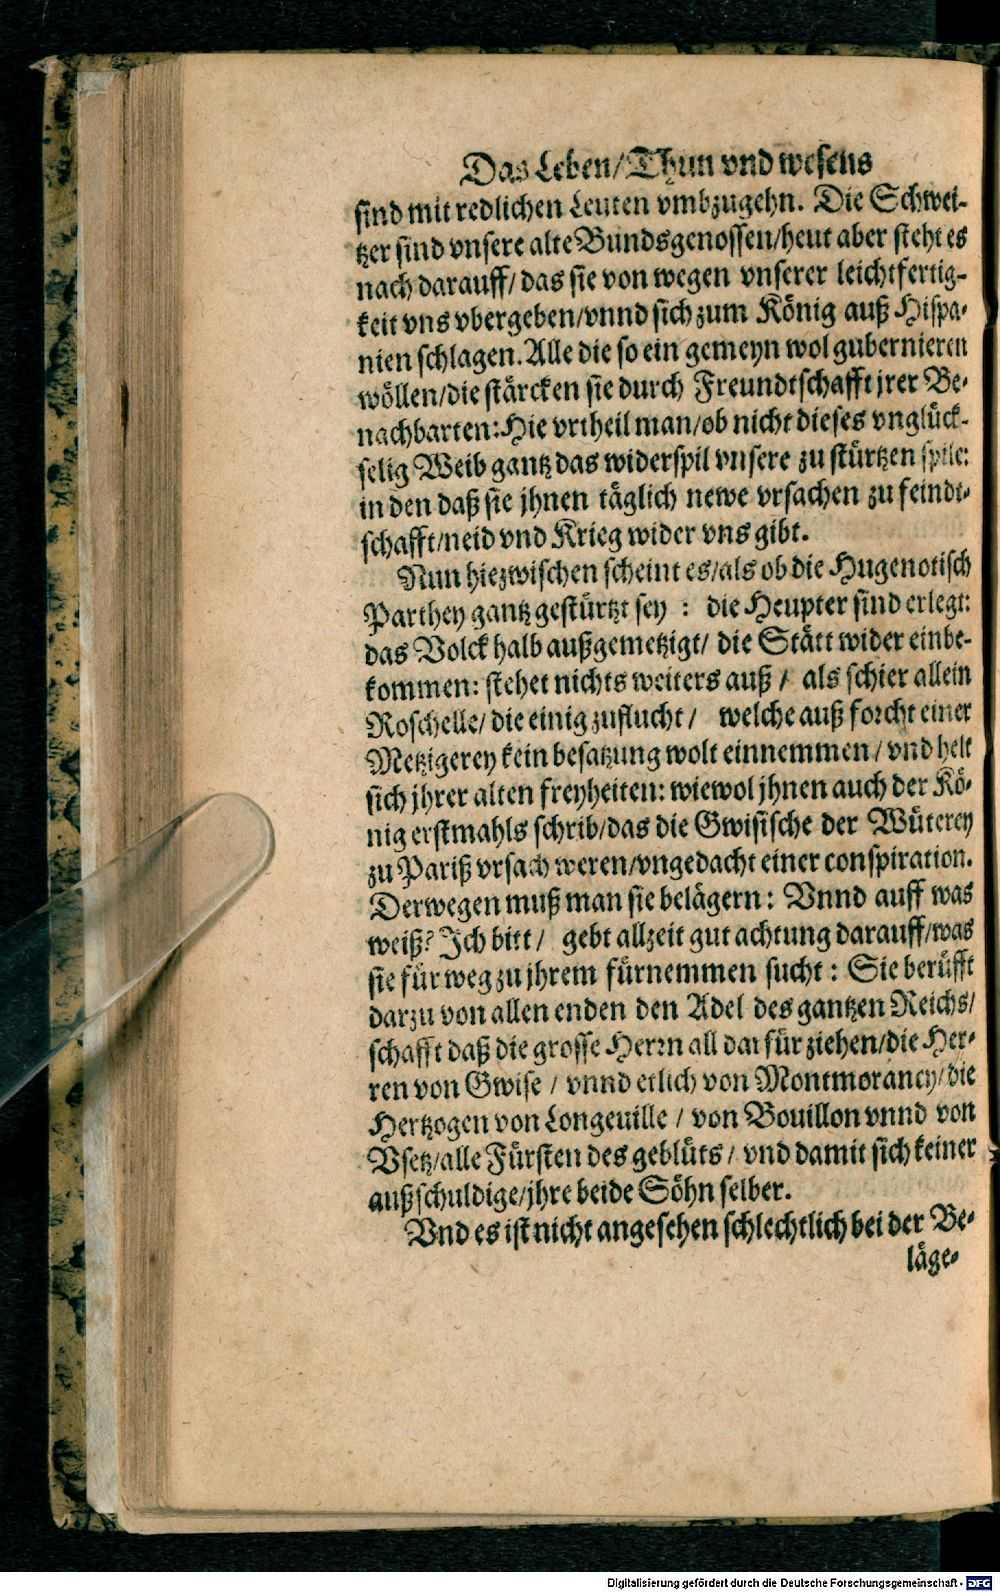 Das Leben/Thun vnd wesens
sind mit redlichen Leuten vmbzugehn. Die Schwei-
tzer sind vnsere alte Bundsgenossen/heut aber steht es
nach darauff/das sie von wegen vnserer leichtfertig-
keit vns vbergeben/vnnd sich zum König auß Hispa-
nien schlagen. Alle die so ein gemeyn wol gubernieren
wöllen/die stärcken sie durch Freundtschafft jrer Be-
nachbarten: Hie vrtheil man/ob nicht dieses vnglück-
selig Weib gantz das widerspil vnsere zu stürtzen spile:
in den daß sie jhnen täglich newe vrsachen zu feindt-
schafft/neid vnd Krieg wider vns gibt.
Nun hiezwischen scheint es/als ob die Hugenotisch
Parthey gantz gestürtzt sey : die Heupter sind erlegt:
das Volck halb außgemetzigt/ die Stätt wider einbe-
kommen: stehet nichts weiters auß / als schier allein
Roschelle/ die einig zuflucht / welche auß forcht einer
Metzigerey kein besatzung wolt einnemmen / vnd helt
sich jhrer alten freyheiten: wiewol jhnen auch der Kö-
nig erstmahls schrib/das die Gwisische der Wüterey
zu Pariß vrsach weren/vngedacht einer conspiration.
Derwegen muß man sie belägern: Vnnd auff was
weiß? Ich bitt / gebt allzeit gut achtung darauff/was
sie für weg zu jhrem fürnemmen sucht : Sie berüfft
darzu von allen enden den Adel des gantzen Reichs/
schafft daß die grosse Herrn all dar für ziehen/die Her-
ren von Gwise / vnnd etlich von Montmorancy/die
Hertzogen von Longeuille / von Bouillon vnnd von
Vsetz/alle Fürsten des geblüts / vnd damit sich keiner
außschuldige/jhre beide Söhn selber.
Vnd es ist nicht angesehen schlechtlich bei der Be-
läge-
Digitalisierung gefördert durch die Deutsche Forschungsgemeinschaft - DFG